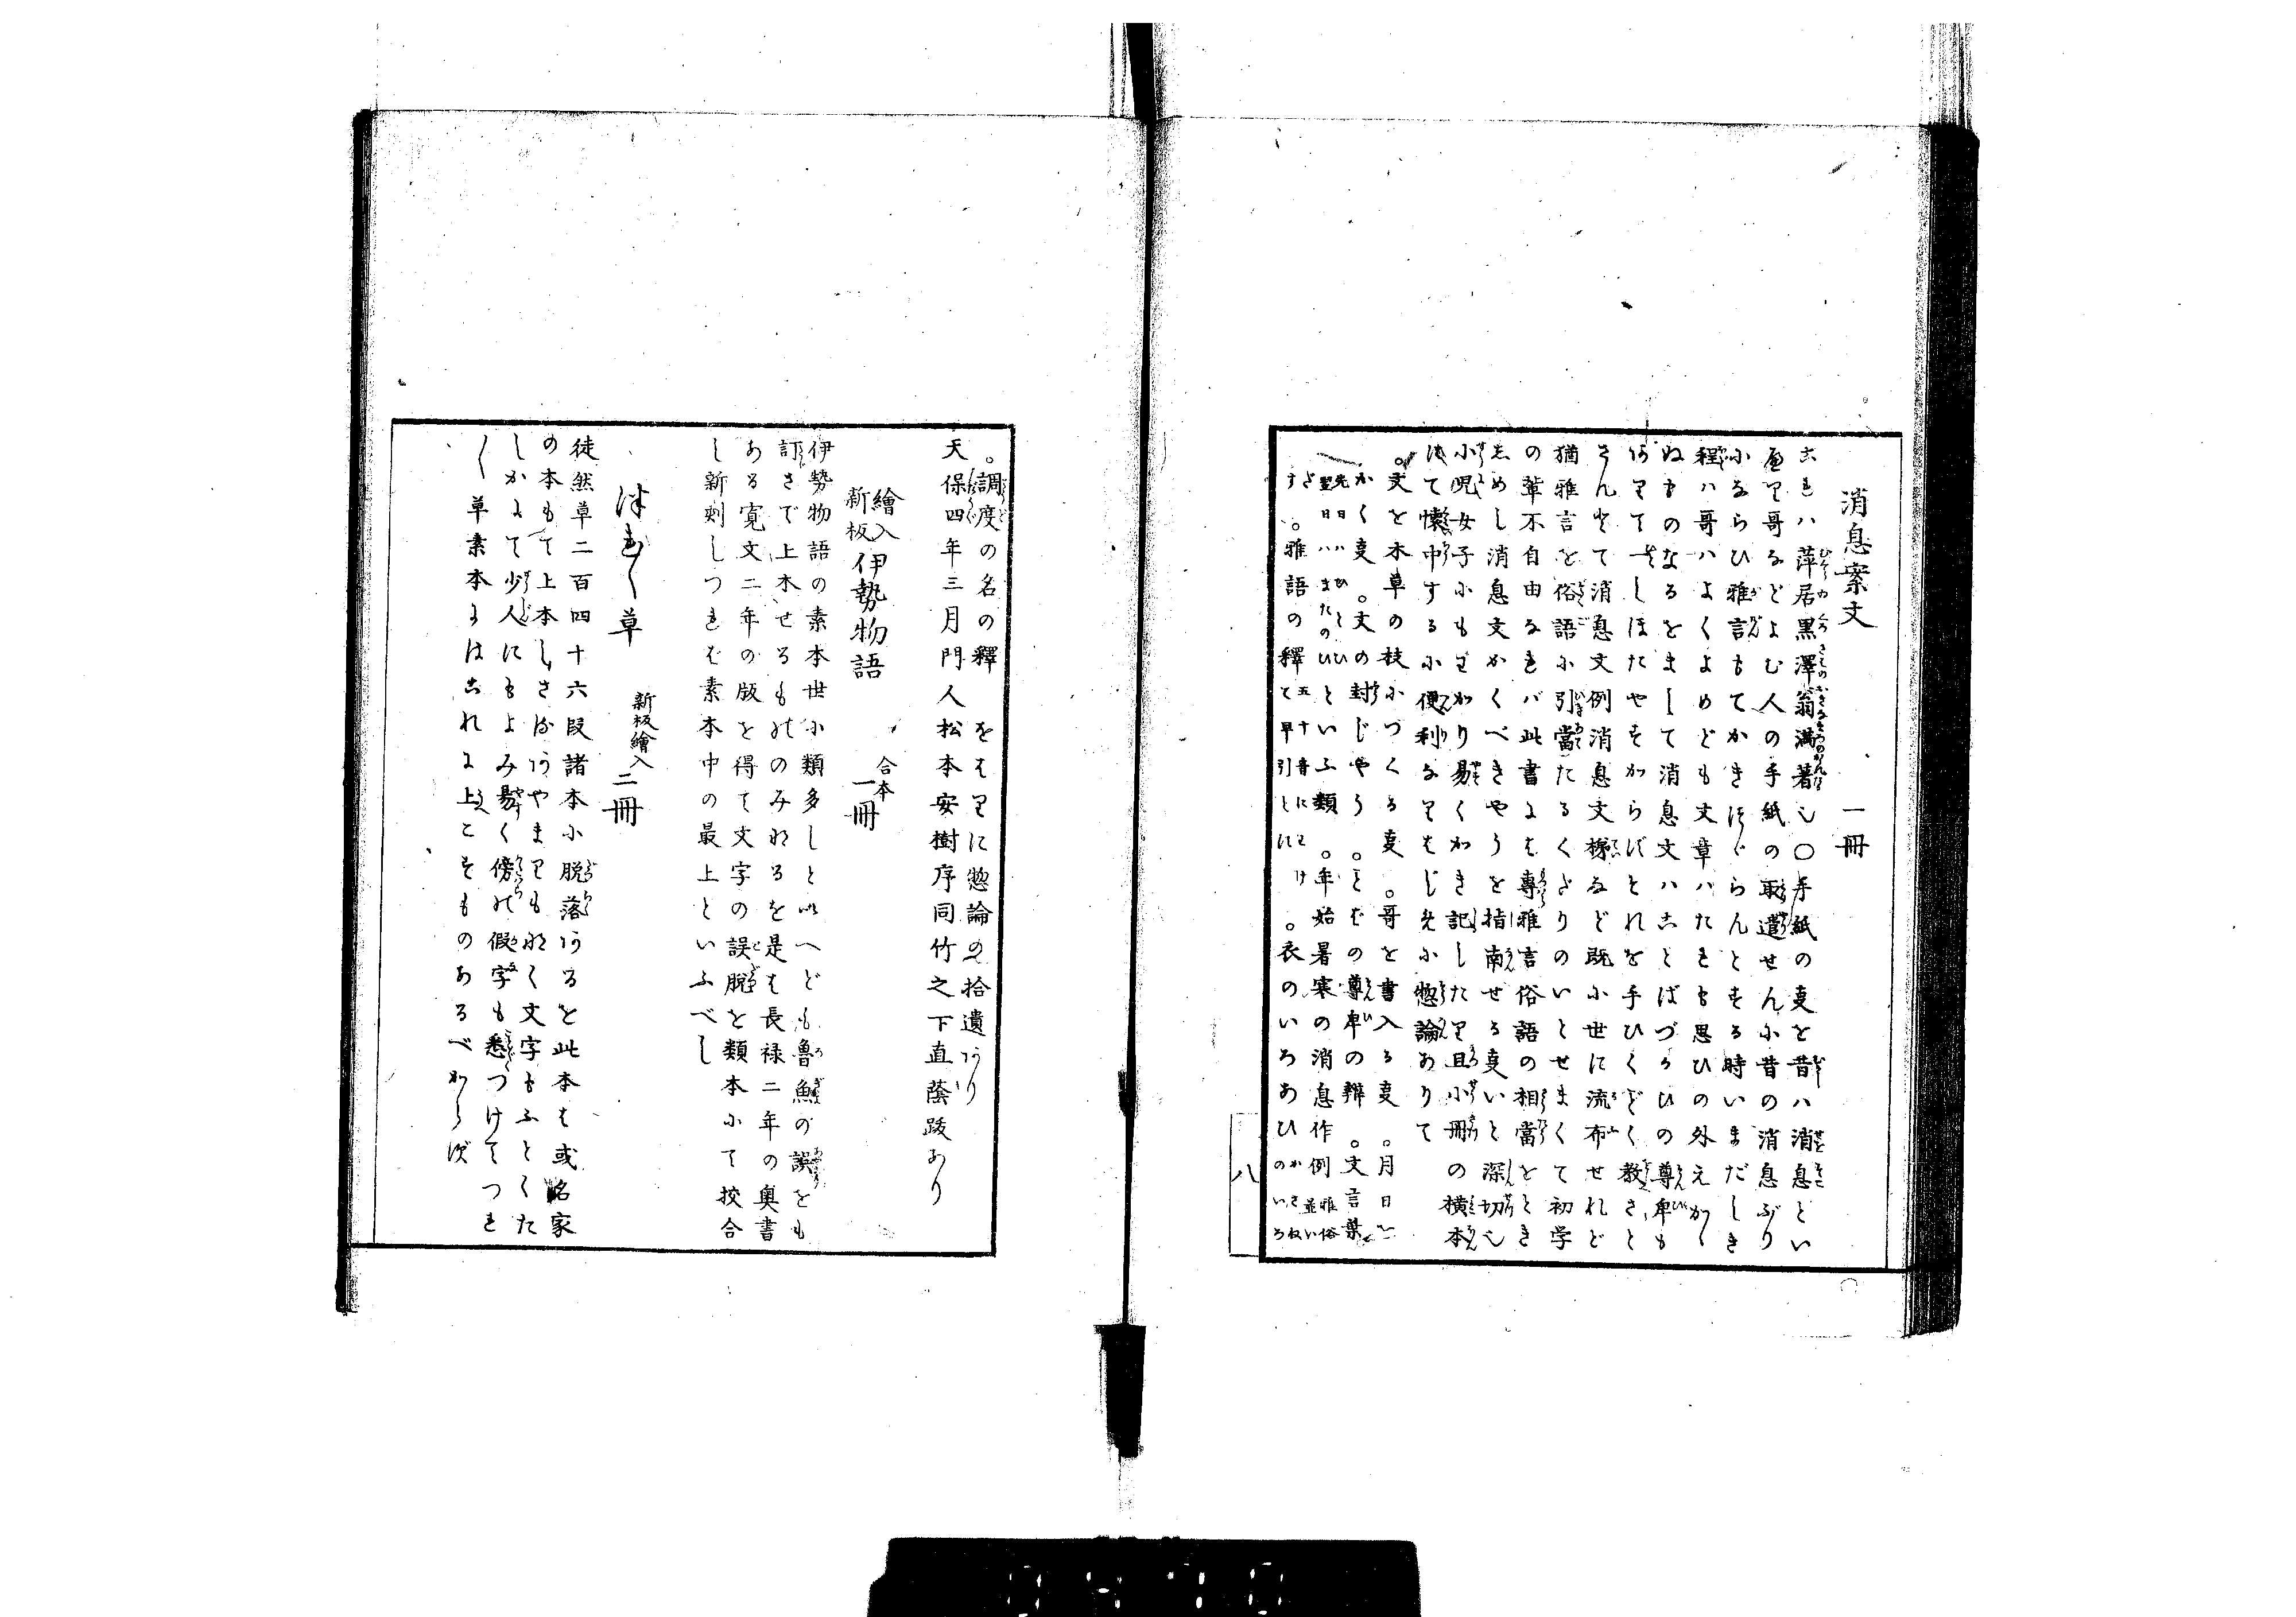 消息案文　一冊
これハ萍居黒澤翁満著也〇手紙の事を昔ハ消息とい
へり哥などよむ人の手紙の取遣せんに昔の消息ぶり
にならひ雅言もてかきつゞらんとする時いまだしき
程ハ哥ハよくよめども文章ハたえて思ひの外えかゝ
ぬものなるをまして消息文ハことばづかひの尊卑も
ありて
さんとて消息文例消息文梯など既に世に流布せれど
猶雅言を俗語に引當たるくだりのいとせまくて初学
の輩不自由なれバ此書には專雅言俗語の相當をとき
しめし消息文かくべきやうを指南せる事いと深切也
小児女子にもわかり易くかき記したり且小冊の横本
にて懐中するに便利なりはじめに惣論ありて
。文を木草の枝につくる事。哥を書入る事。月日を
かく事。文の封じやう。ことばの尊卑の辨。文言葉
翌日ハまたのひといふ類。年始暑寒の消息作例
。雅語の釋　。衣のいろあひ
。調度の名の釋　をはりに惣論の拾遺あり
天保四年三月門人松本安樹序同竹之下直蔭跋あり
繪入
新板　伊勢物語　合本一冊
伊勢物語の素本世に類多しと以へども魯魚の誤をも
訂さで上木せるものみなるを是は長禄二年の奥書
ある寛文二年の版を得て文字の誤脱を類本にて挍合
し新刻しつれば素本中の最上といふべし
つれ〴〵草　新板繪入二冊
徒然草二百四十六段諸本に脱落あるを此本は或名家
の本もて上本しさればあやまりもなく文字もふとくた
しかにて少人にもよみ易く傍の假字も悉つけてつれ
〴〵草素本にはこれに上こすものあるべからず
八